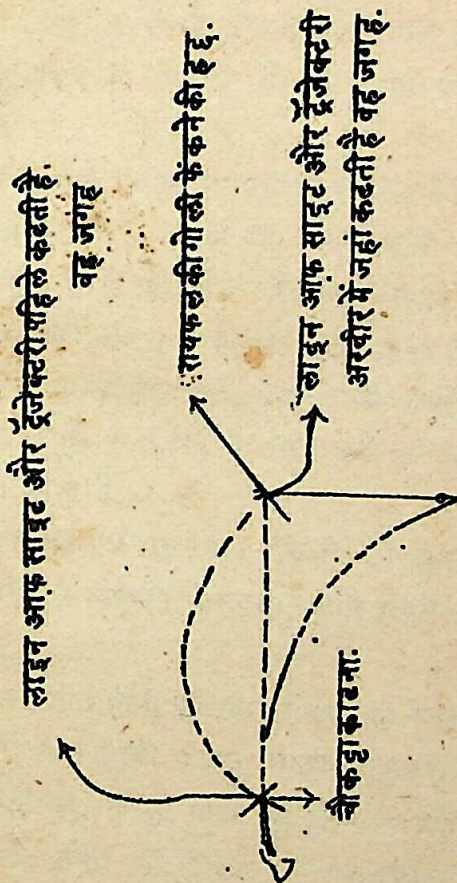 लाइन आफ साइट और ट्रॅजेक्टरी पहिले कटती है.
वह जगह
रायफल की गोली फेंकने की हद्द.
लाइन आफ साइट और ट्रॅजेक्टरी
अखीर में जहां कटती है वह जगह.
चौकट्टा काटना.